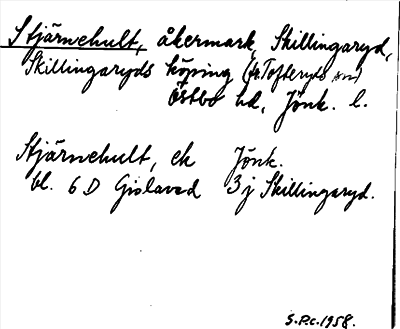 Stjärnehult, åkermark, Skillingaryd,
Skillingaryds köping (fr Tofteryds sn)
Östbo hd, Jönk. l.
Stjärnehult, ek Jönk.
bl. 6 D Gislaved 3 j Skillingaryd.
S.P.C. 1958.